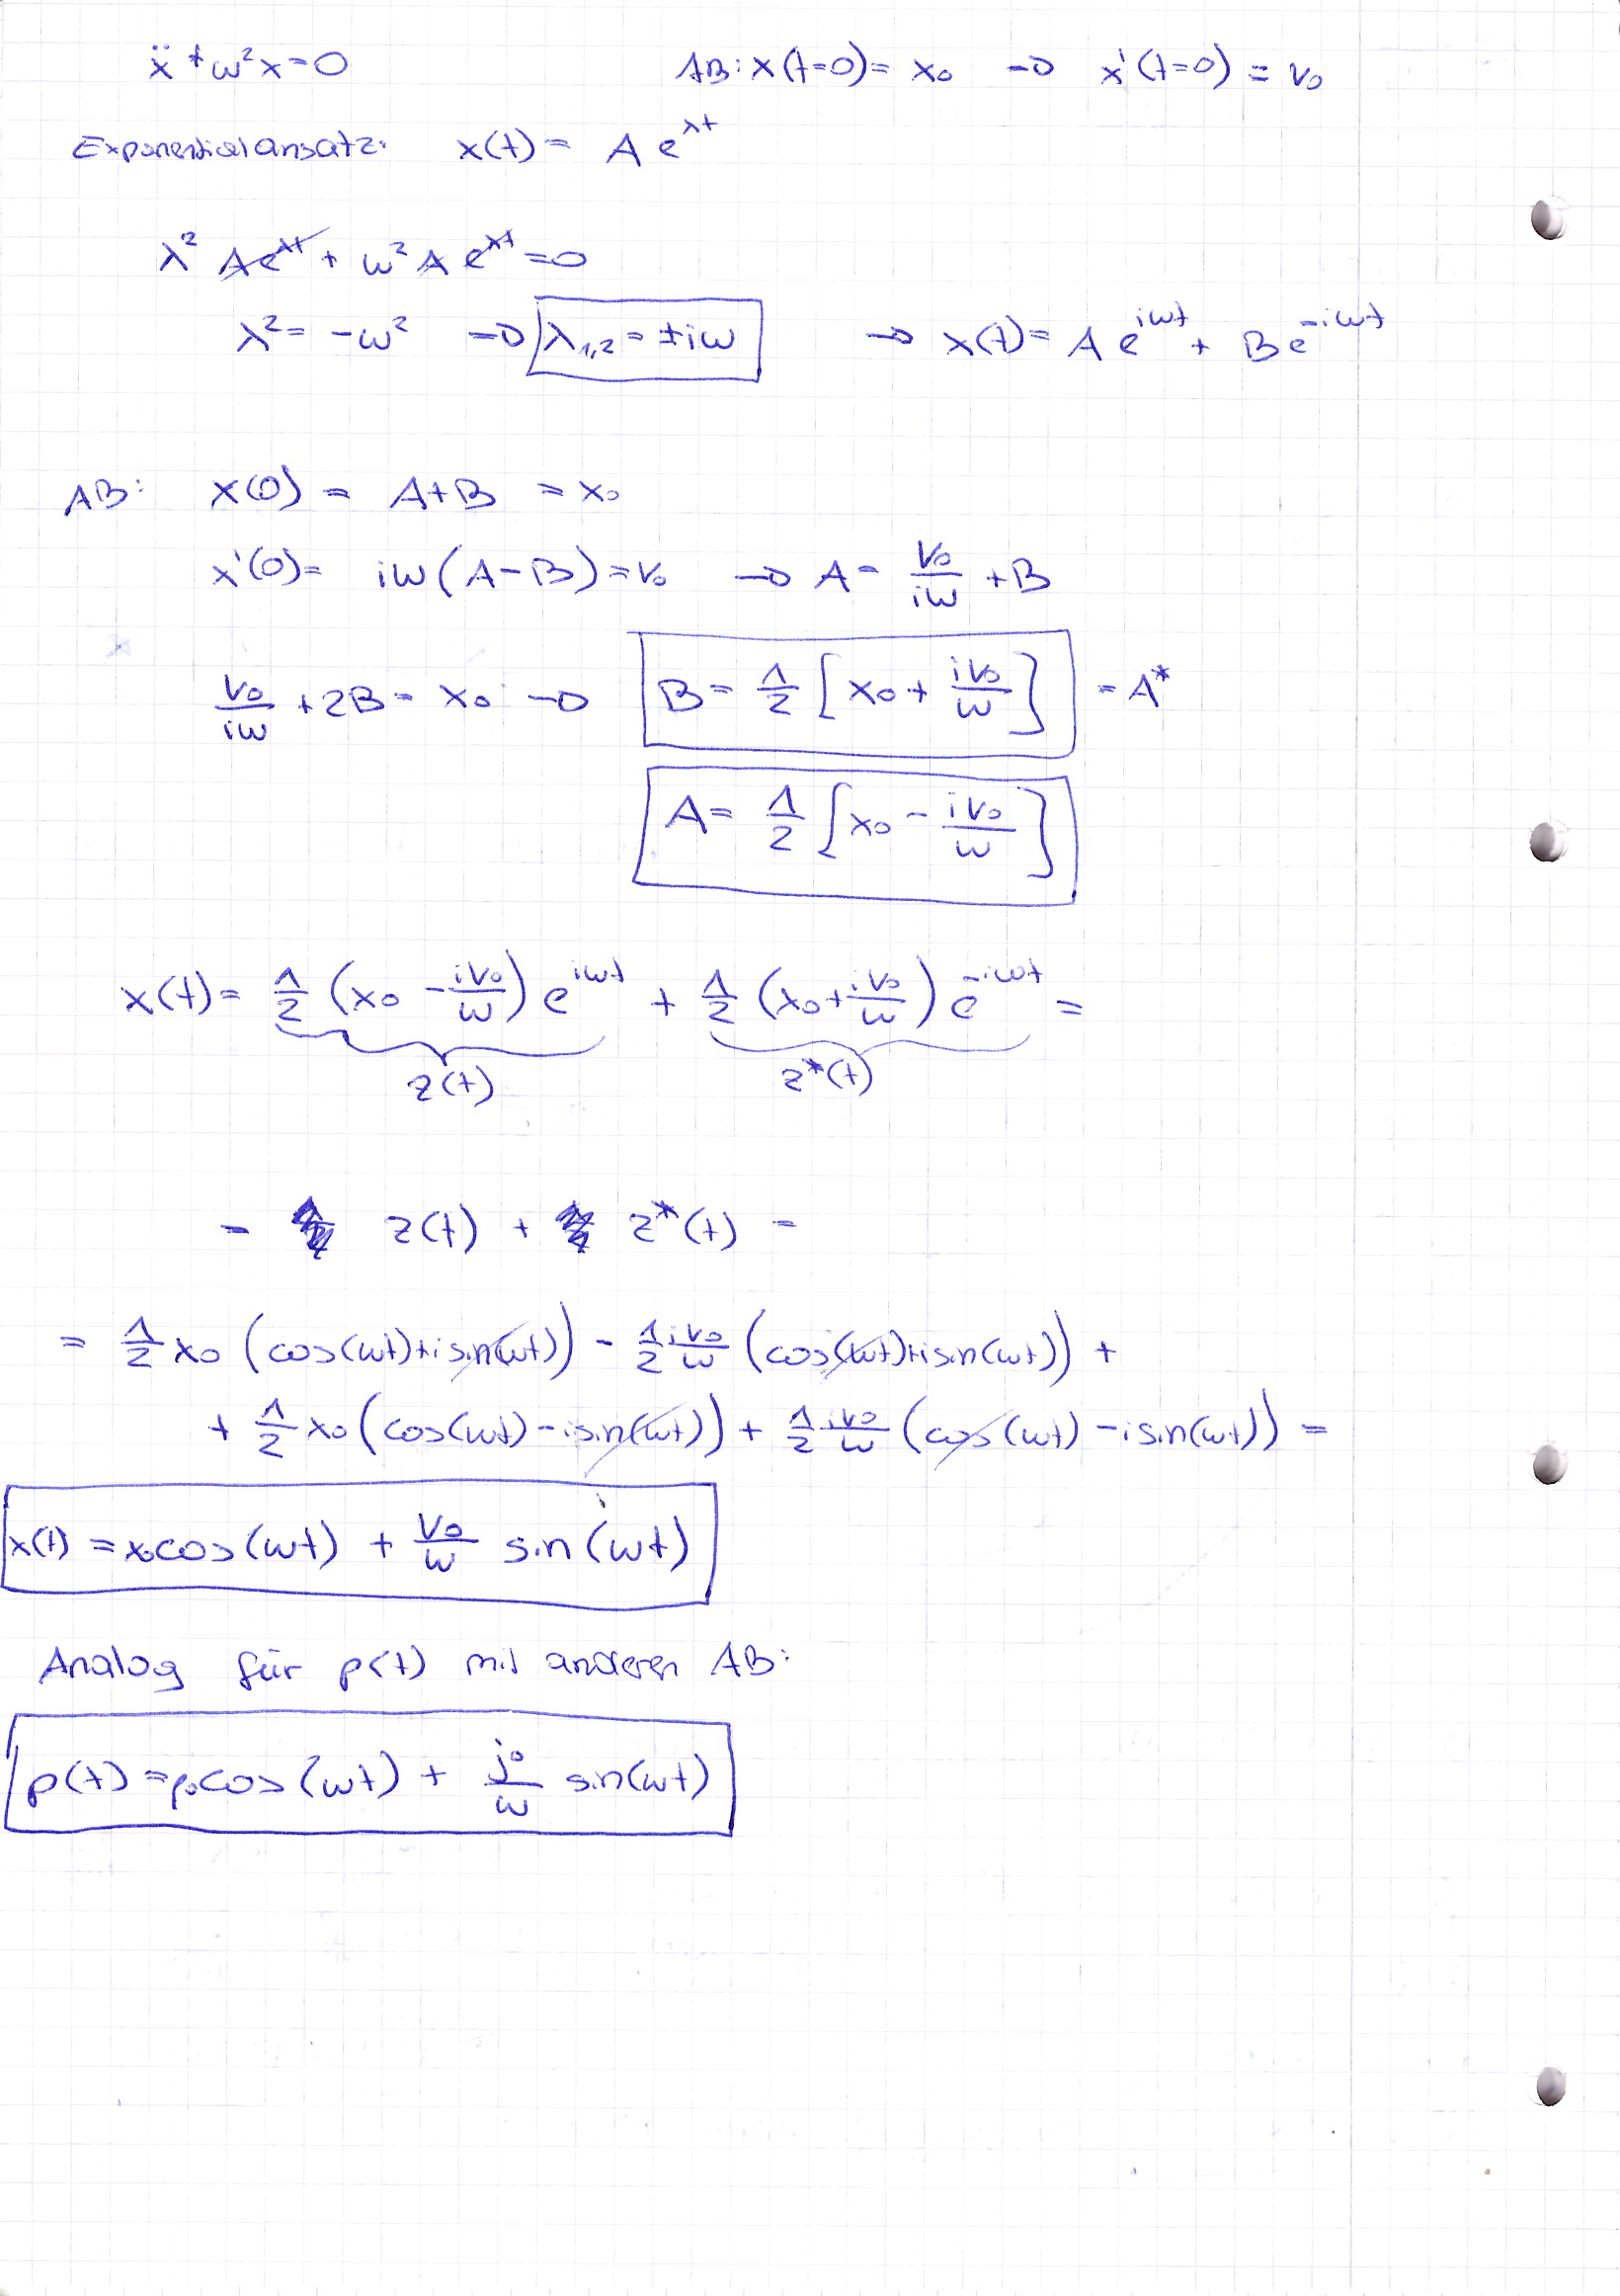 ẍ + ω²x = 0 AB: x(t=0) = x₀ → ẋ(t=0) = v₀
Exponentialansatz: x(t) = A e^{λt}
λ² A e^{λt} + ω² A e^{λt} = 0
λ² = -ω² → λ₁,₂ = ±iω → x(t) = A e^{iωt} + B e^{-iωt}
AB: x(0) = A+B = x₀
ẋ(0) = iω(A-B) = v₀ → A = v₀/iω + B
v₀/iω + 2B = x₀ → B = 1/2 [x₀ + iv₀/ω] = A*
A = 1/2 [x₀ - iv₀/ω]
x(t) = 1/2 (x₀ - iv₀/ω) e^{iωt} + 1/2 (x₀ + iv₀/ω) e^{-iωt} =
z(t) z*(t)
= z(t) + z*(t) =
= 1/2 x₀ (cos(ωt)+isin(ωt)) - 1/2 iv₀/ω (cos(ωt)+isin(ωt)) +
+ 1/2 x₀ (cos(ωt)-isin(ωt)) + 1/2 iv₀/ω (cos(ωt)-isin(ωt)) =
x(t) = x₀cos(ωt) + v₀/ω sin(ωt)
Analog für p(t) mit anderen AB:
p(t) = p₀cos(ωt) + j₀/ω sin(ωt)